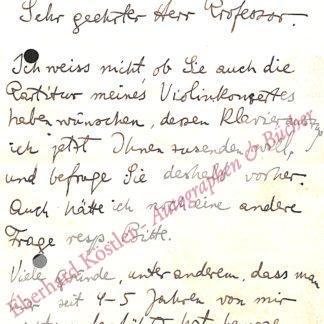 Sehr geehrter Herr Professor.
Ich weiss nicht, ob Sie auch die
Partitur meines Violinkonzertes
haben wünschen, dessen Klavierauszug
ich jetzt Ihnen zusenden
und befrage Sie deshalb vorher.
Auch hätte ich noch eine andere
Frage resp. Bitte.
Viele Gründe, unter anderem, dass man
seit 4-5 Jahren von mir
Eberhard Köstler Autographen & Bücher